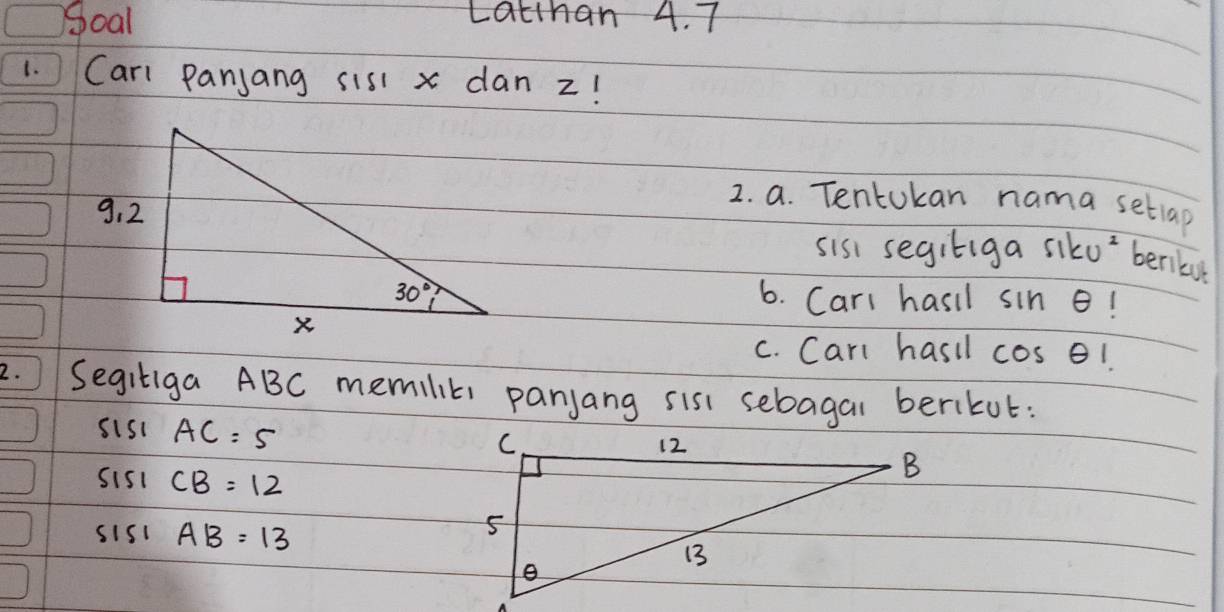 Soal
Latihan 4.7
1. Cari panjang sisi x dan z!
9,2
30°
x
2. a. Tentukan nama setiap
sisi segitiga siku² berikut
b. Cari hasil sin θ!
c. Cari hasil cos θ!
2. Segitiga ABC memiliki panjang sisi sebagai berikut:
sisi AC = 5
sisi CB = 12
sisi AB = 13
C 12 B
5
13
θ